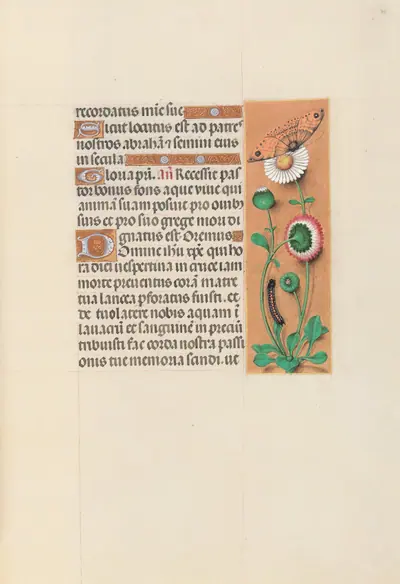 recordatus mie sue
Sicut locutus est ad patres
nostros abraham ⁊ semini eius
in secula
Gloria pri. An Recessit pas
tor bonus fons aque vive qui
animā suam posuit pro ovibȝ
suis et pro suo grege mori di
gnatus est Oremus
Domine ihu xpe qui ho
ra diei vespertina in cruce iam
morte preventus corā matre
tua lancea pforatus fuisti. et
de tuo latere nobis aquam ī
lavacrū et sanguinē in preciū
tribuisti fac corda nostra passi
onis tue memoria scindi. ut